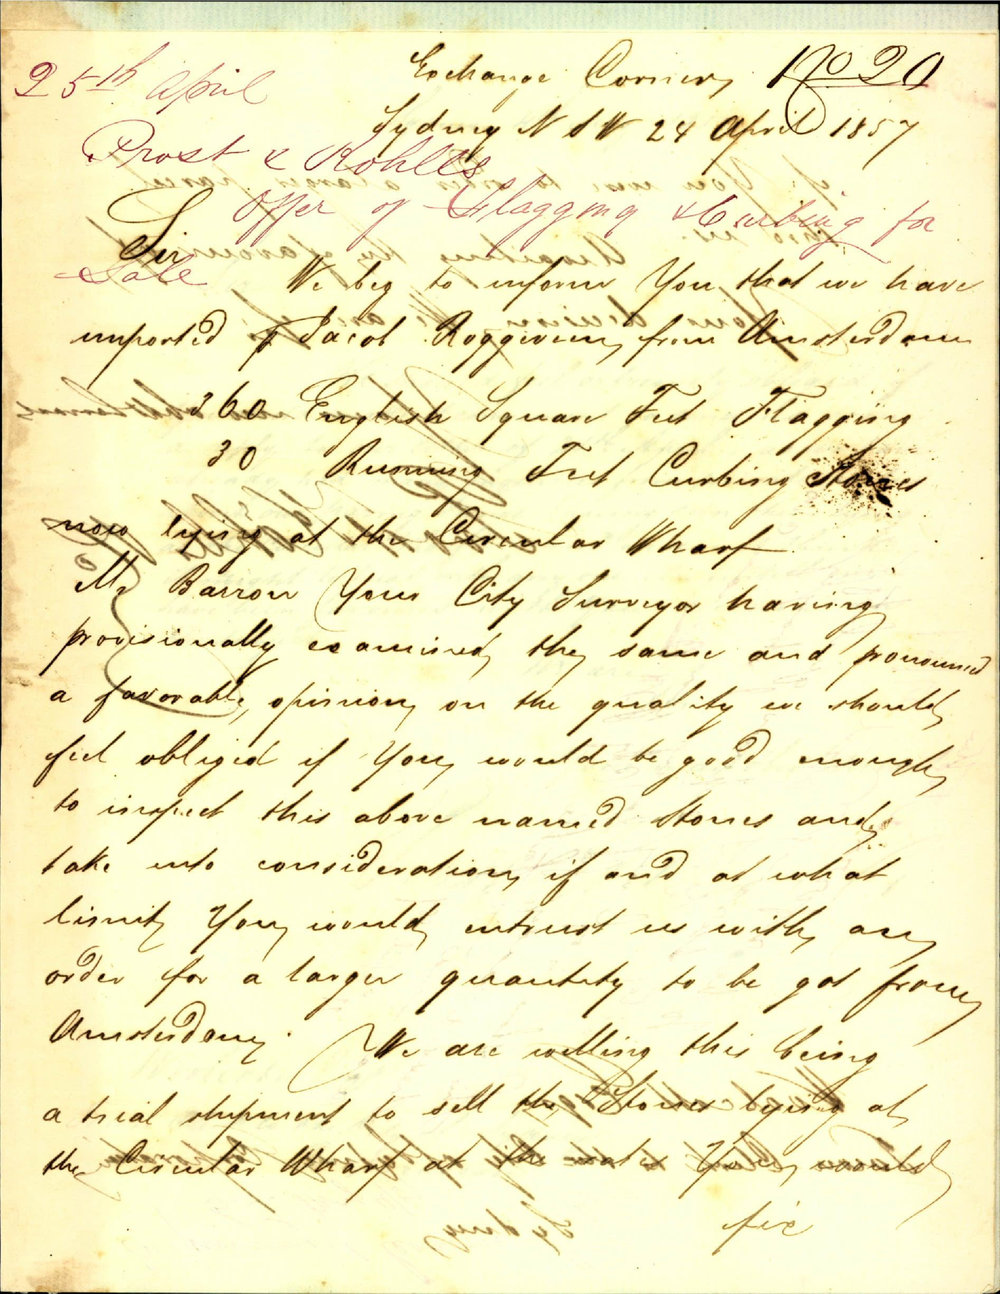 Exchange Corner, No 20
25th April
Sydney N S W 24 April 1857
Prost & Kohlls
Offer of Flagging & Curbing for
Sale
Sir
We beg to inform You that we have
imported p Jacob Roggeveen, from Amsterdam
360 English Square Feet Flagging
30 Running Feet Curbing Stones
now lying at the Circular Wharf
Mr Barrow Your City Surveyor having
provisionally examined, the same and pronounced
a favorable, opinion, on the quality we should
feel obliged if You, would be good enough,
to inspect this above named Stones and,
take into consideration, if and at what
limit, You, would, entrust us with, any
order for a larger quantity to be got from,
Amsterdam. We are willing this being
a trial shipment to sell the Stones lying at
the Circular Wharf at the rate You, would,
fix